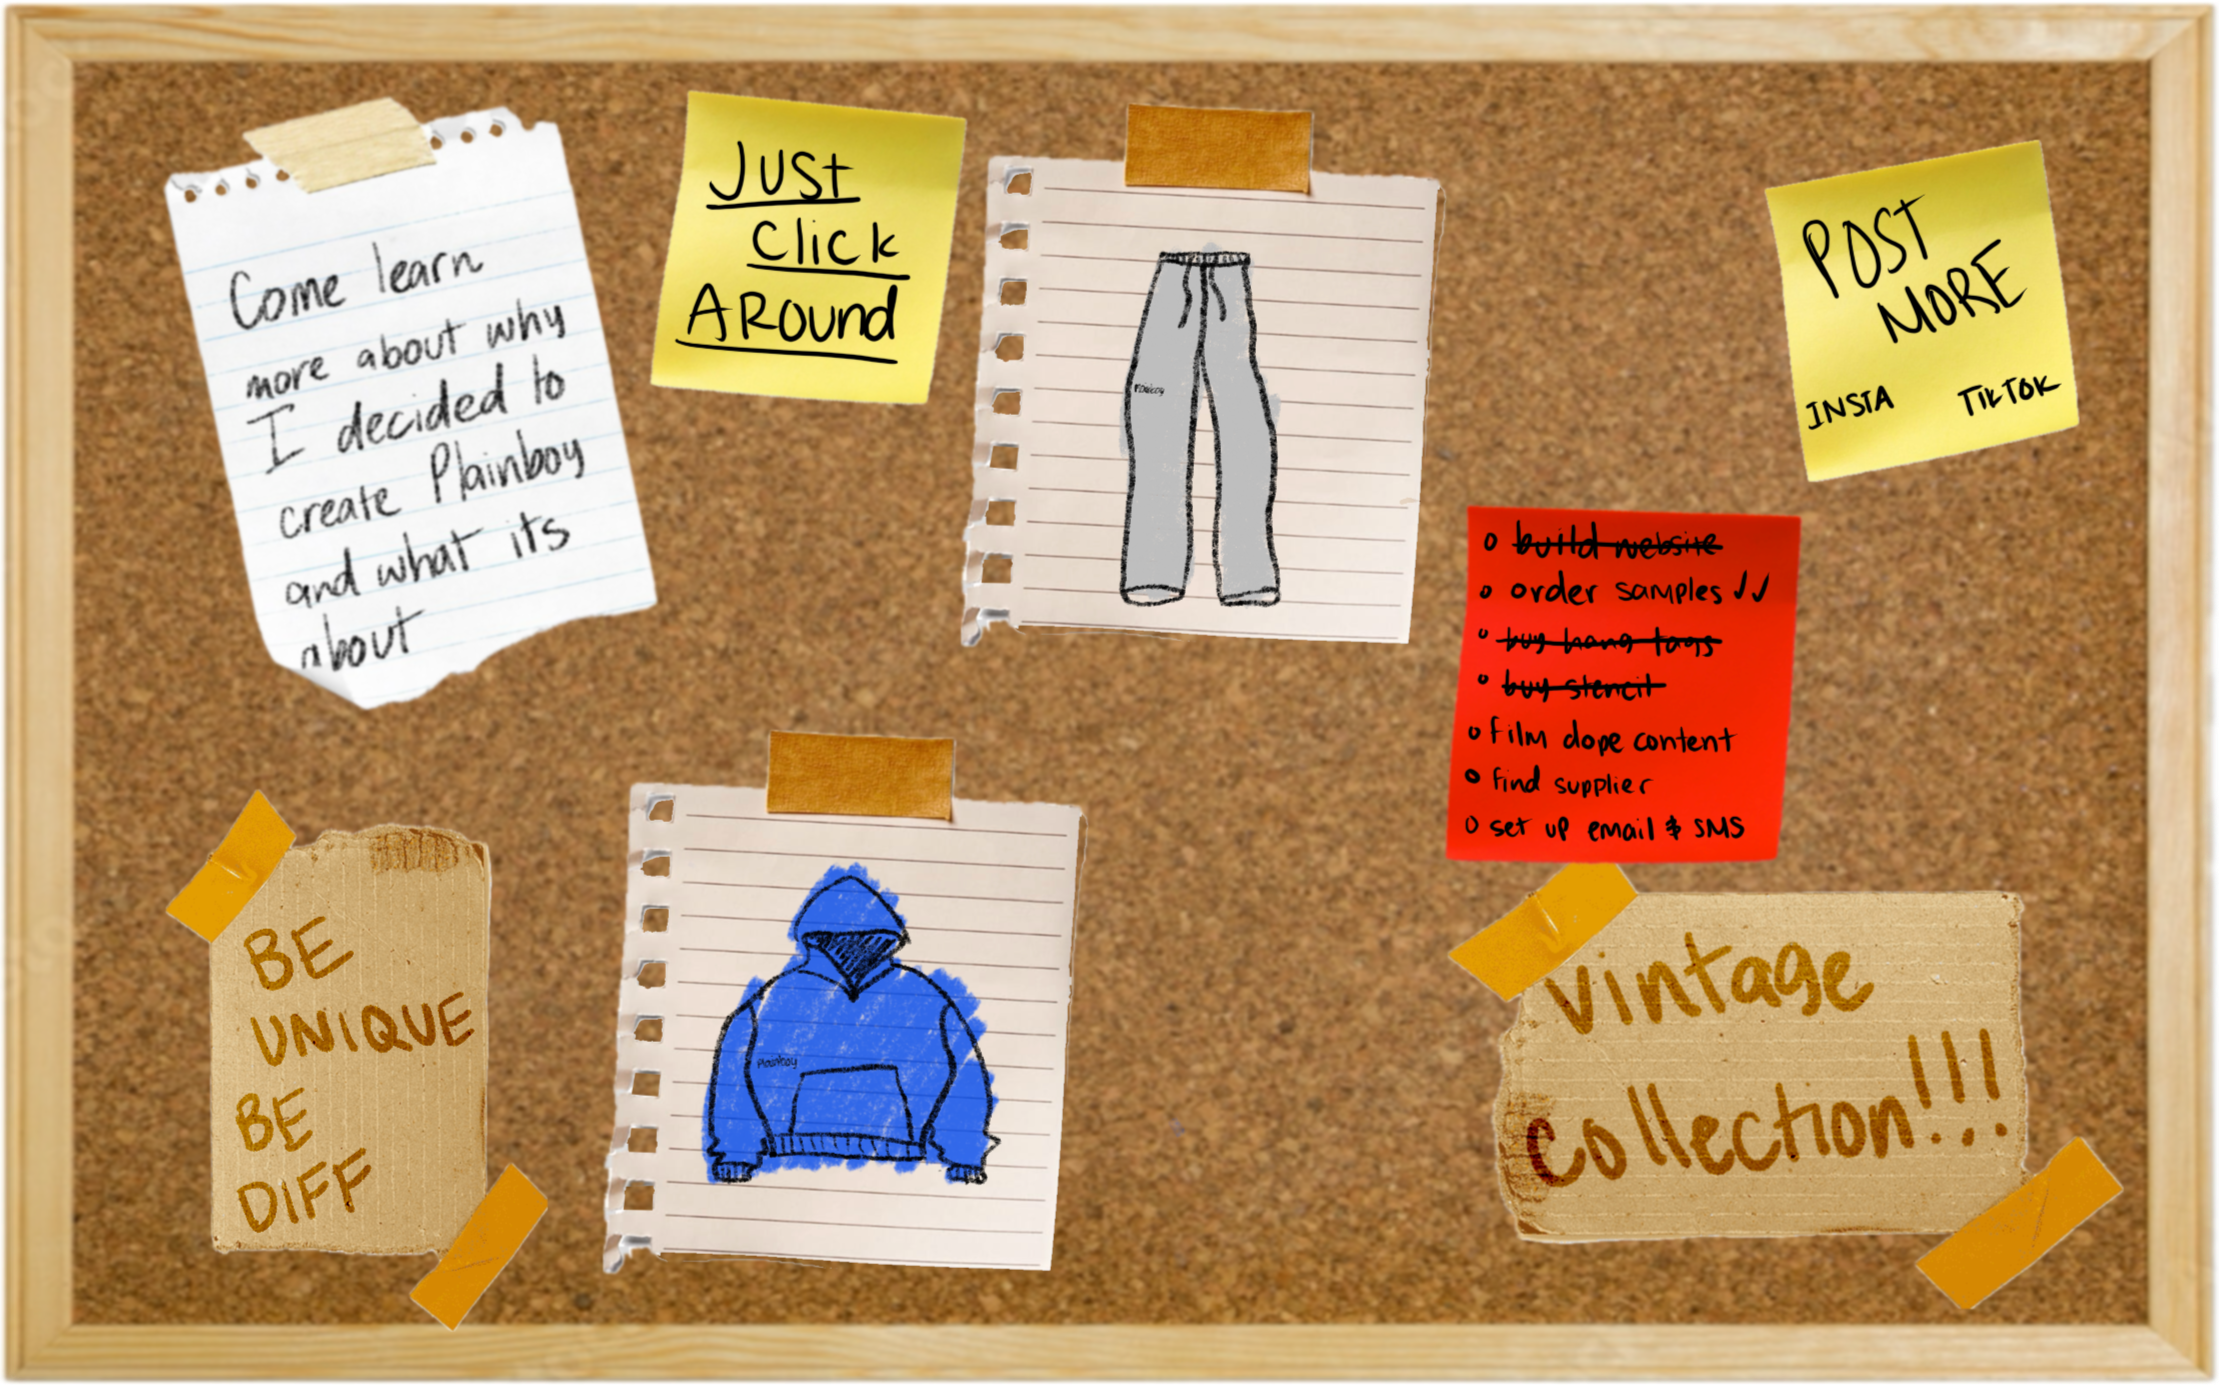 Come learn
more about why
I decided to
create Plainboy
and what its
about
JUST
Click
AROUnd
Plainboy
POST
MORE
INSTA TIKTOK
build website
order samples
buy hang tags
buy stencil
film dope content
find supplier
set up email & SMS
BE
UNIQUE
BE
DIFF
Plainboy
Vintage
collection!!!